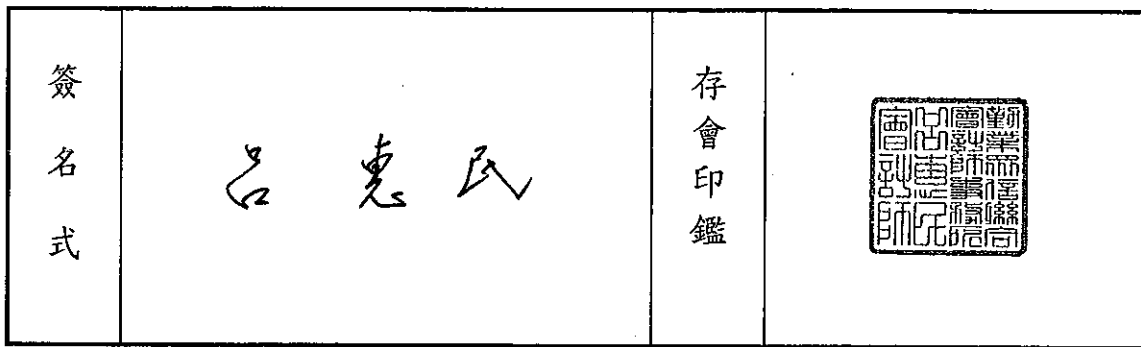 簽名式
呂惠民
存會印鑑
勤業眾信聯合
會計師事務所
呂惠民
會計師